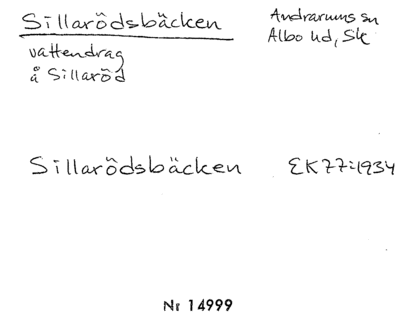 Sillarödsbäcken
Andrarums sn
Albo hd, Sk
vattendrag
å Sillaröd
Sillarödsbäcken EK77:1934
Nr 14999